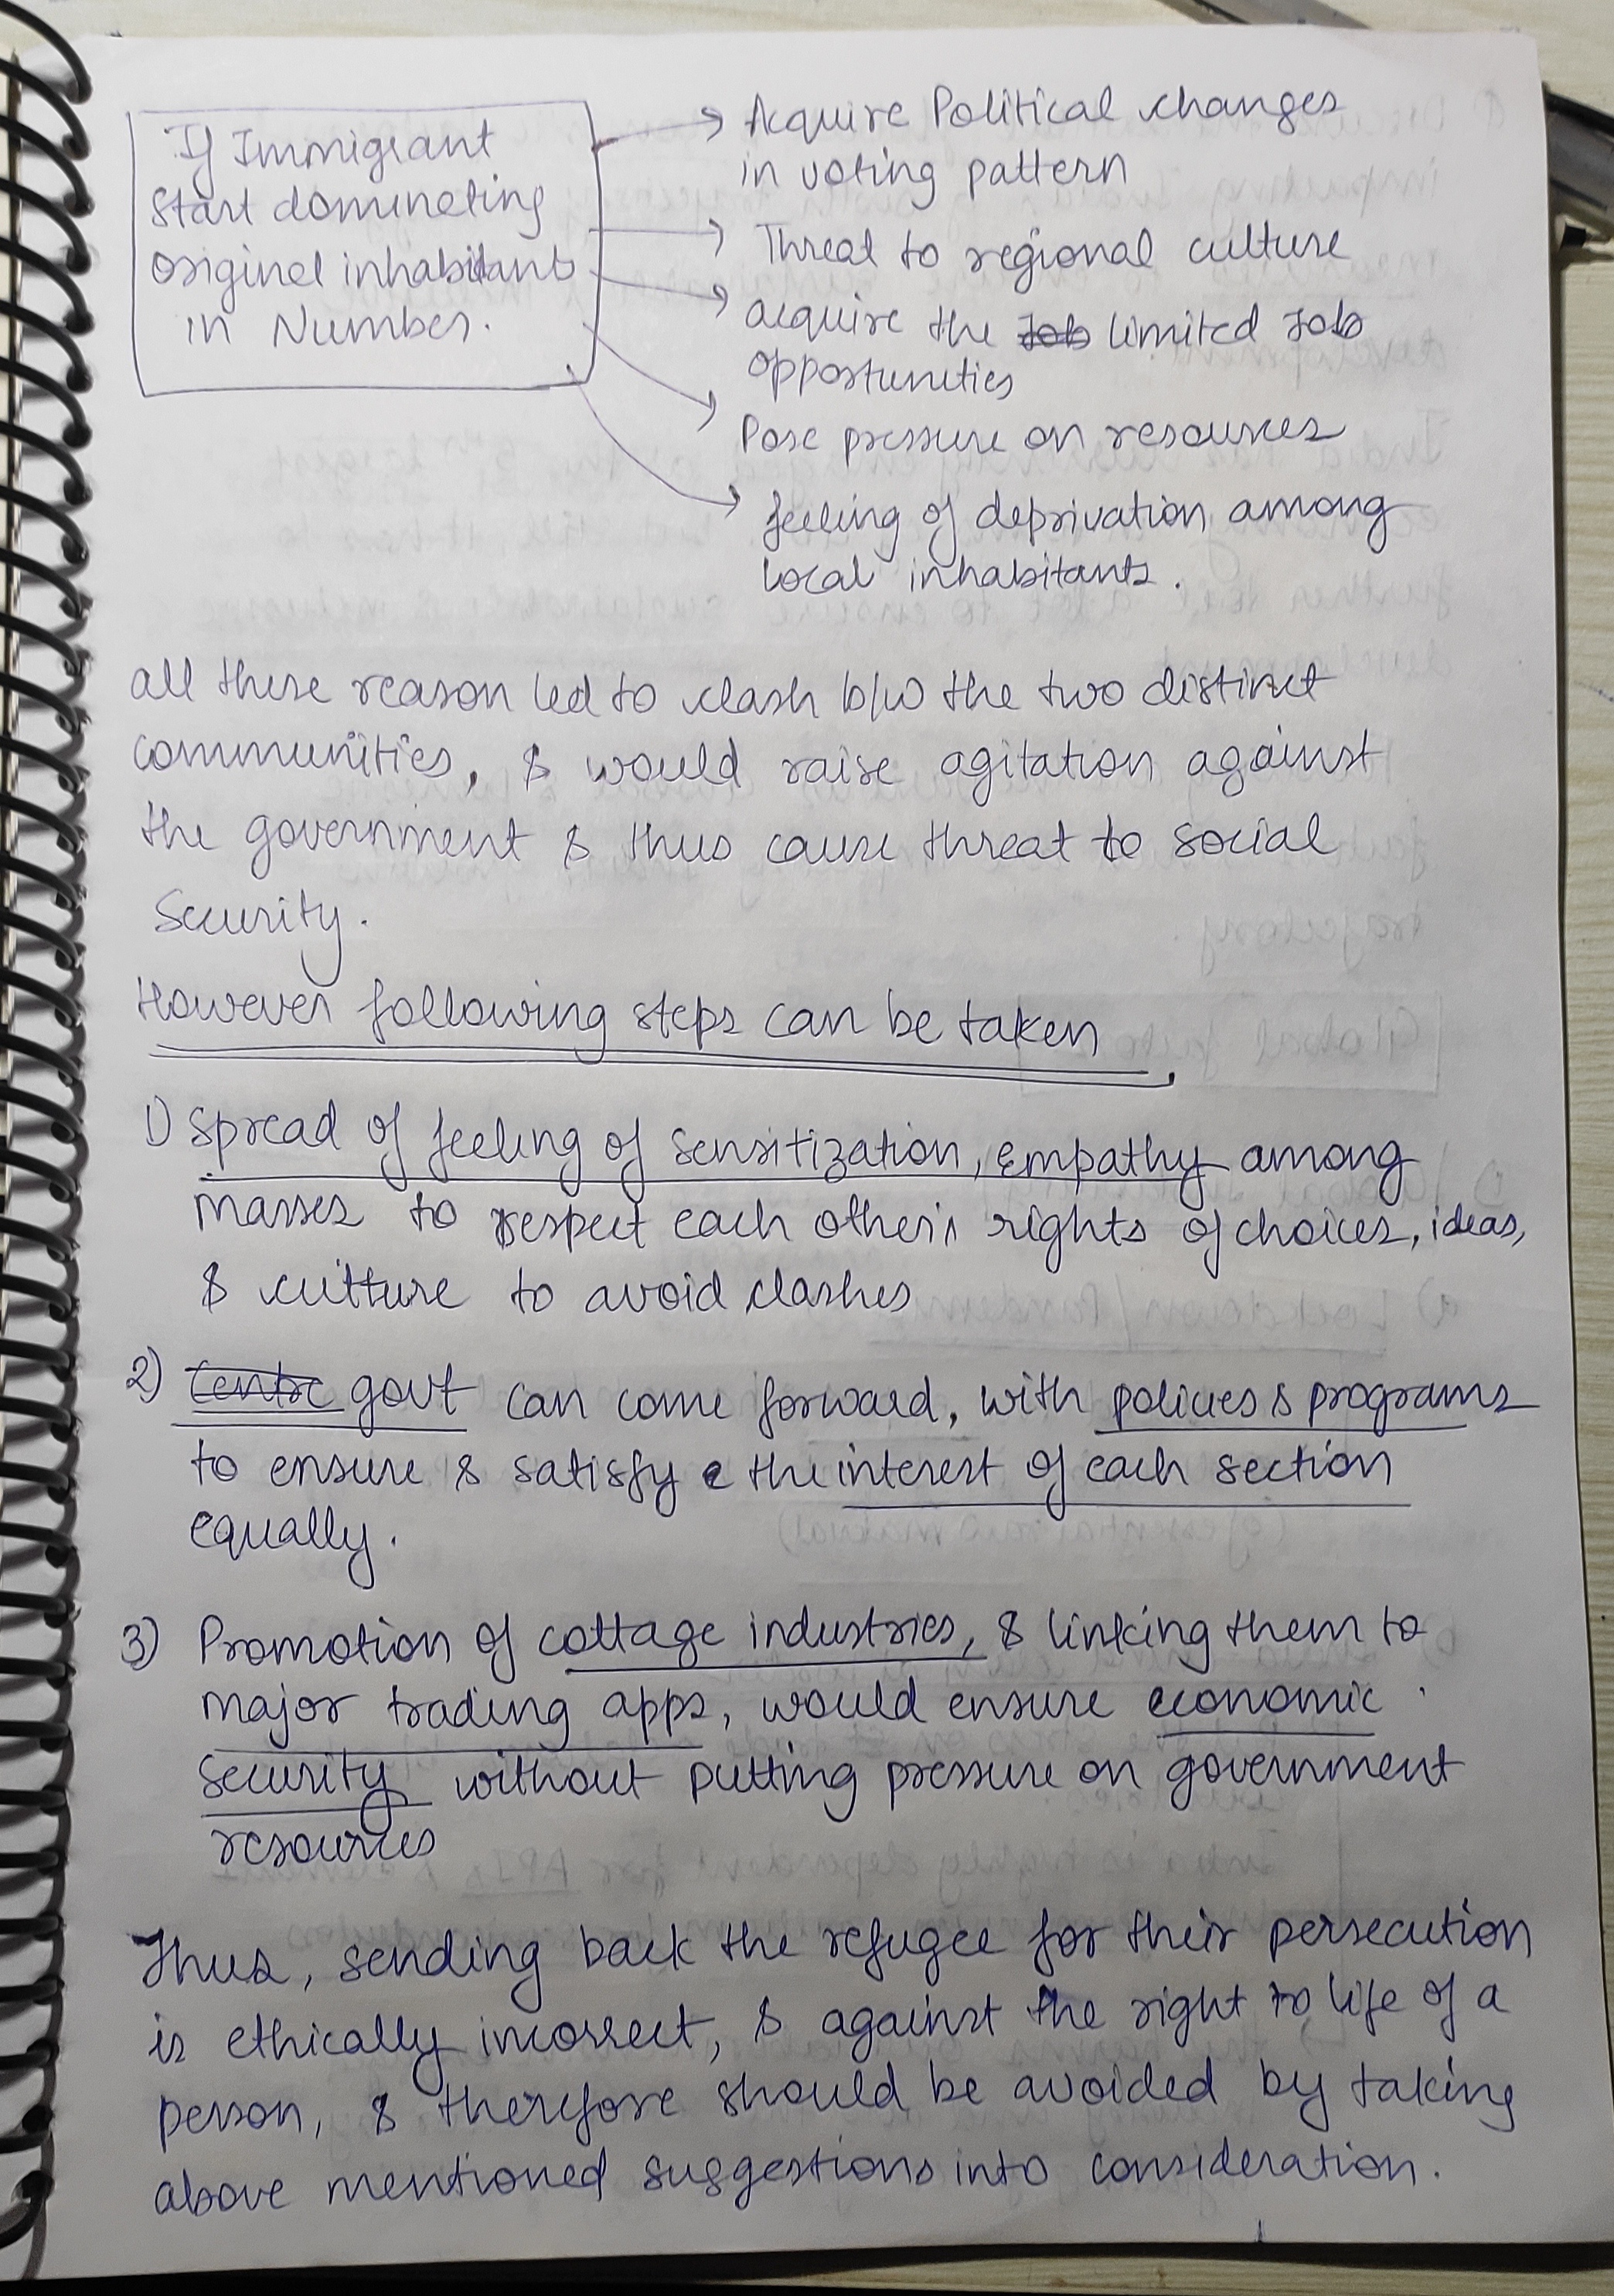 If Immigrant
start domineting
originel inhabitants
in Number.
→ Acquire Political changes
in voting pattern
→ Threat to regional culture
→ acquire the Job limited Job
opportunities
→ Pose pressure on resources
→ feeling of deprivation among
local inhabitants.
all these reason led to clash b/w the two distinct
communities, & would raise agitation against
the government & thus cause threat to social
security.
However following steps can be taken.
1) spread of feeling of sensitization, empathy among
masses to respect each other's rights of choices, ideas,
& culture to avoid clashes
2) Centre govt can come forward, with policies & programs
to ensure & satisfy the interest of each section
equally.
3) Promotion of cottage industries, & linking them to
major trading apps, would ensure economic
security without putting pressure on government
resources
Thus, sending back the refugee for their persecution
is ethically incorrect, & against the right to life of a
person, & therefore should be avoided by taking
above mentioned suggestions into consideration.